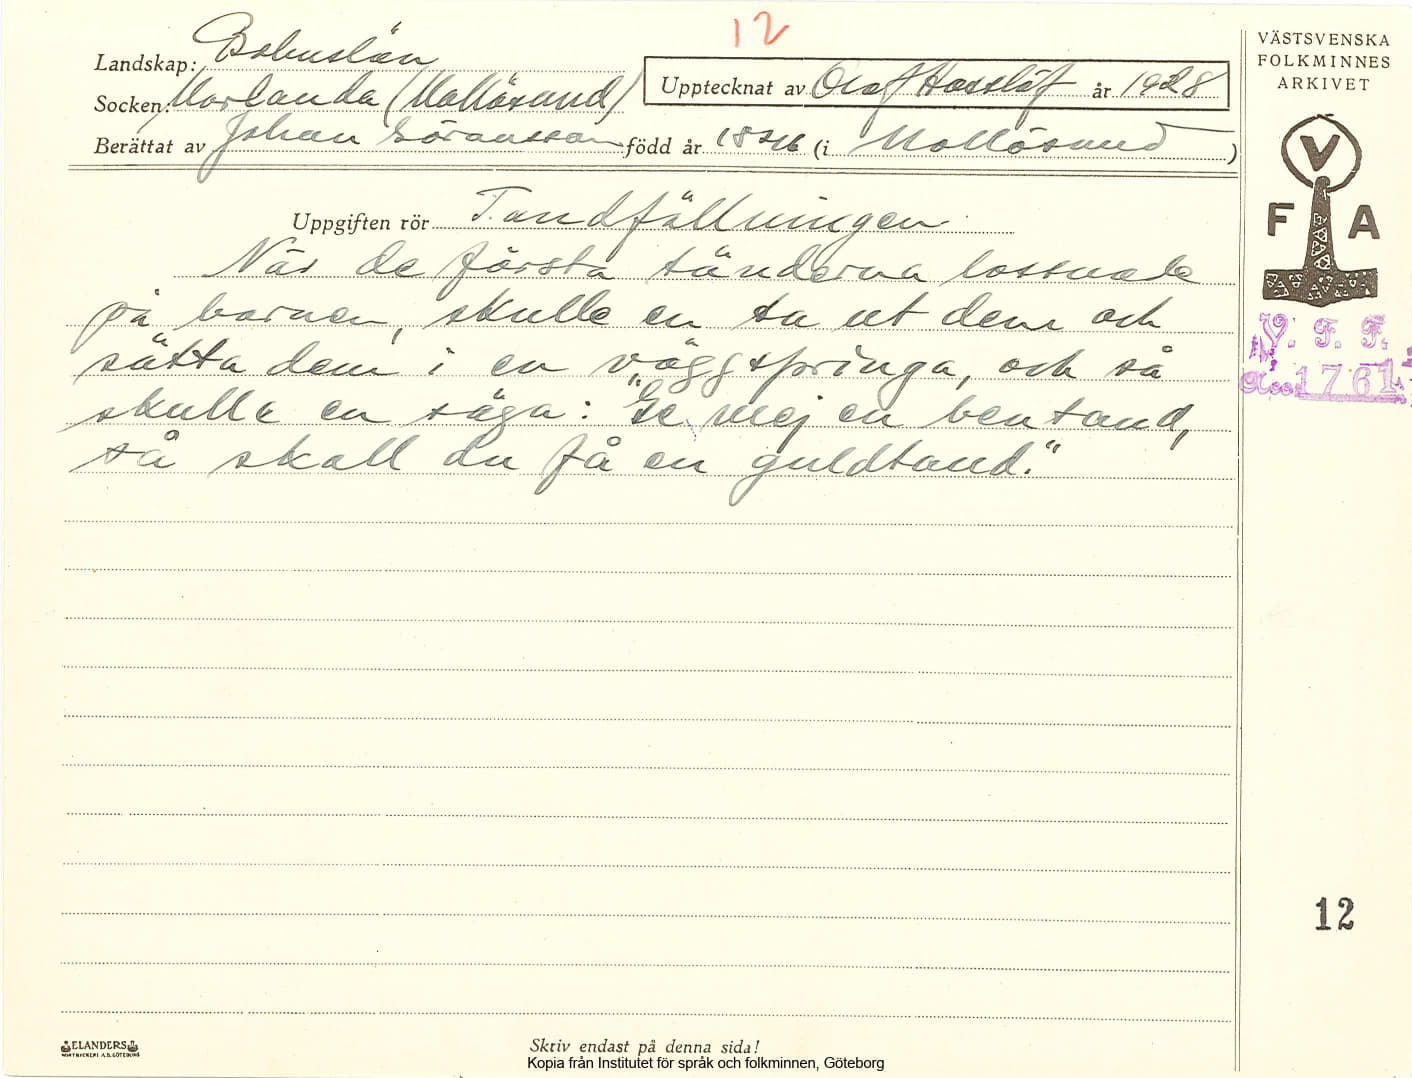 12
Landskap: Bohuslän
Socken: Morlanda (Mollösund)
Upptecknat av Olof Hasslöf år 1928
Berättat av Johan Göransson född år 1846 (i Mollösund)
Uppgiften rör Tandfällningen
När de första tänderna lossnade
på barnen, skulle en ta ut dem och
sätta dem i en väggspringa, och så
skulle en säga: "Ge mej en bentand,
så skall du få en guldtand."
VÄSTSVENSKA
FOLKMINNES
ARKIVET
V
F A
V. F. F.
Acc. 1761
12
ELANDERS
BOKTRYCKERI A.B. GÖTEBORG
Skriv endast på denna sida!
Kopia från Institutet för språk och folkminnen, Göteborg